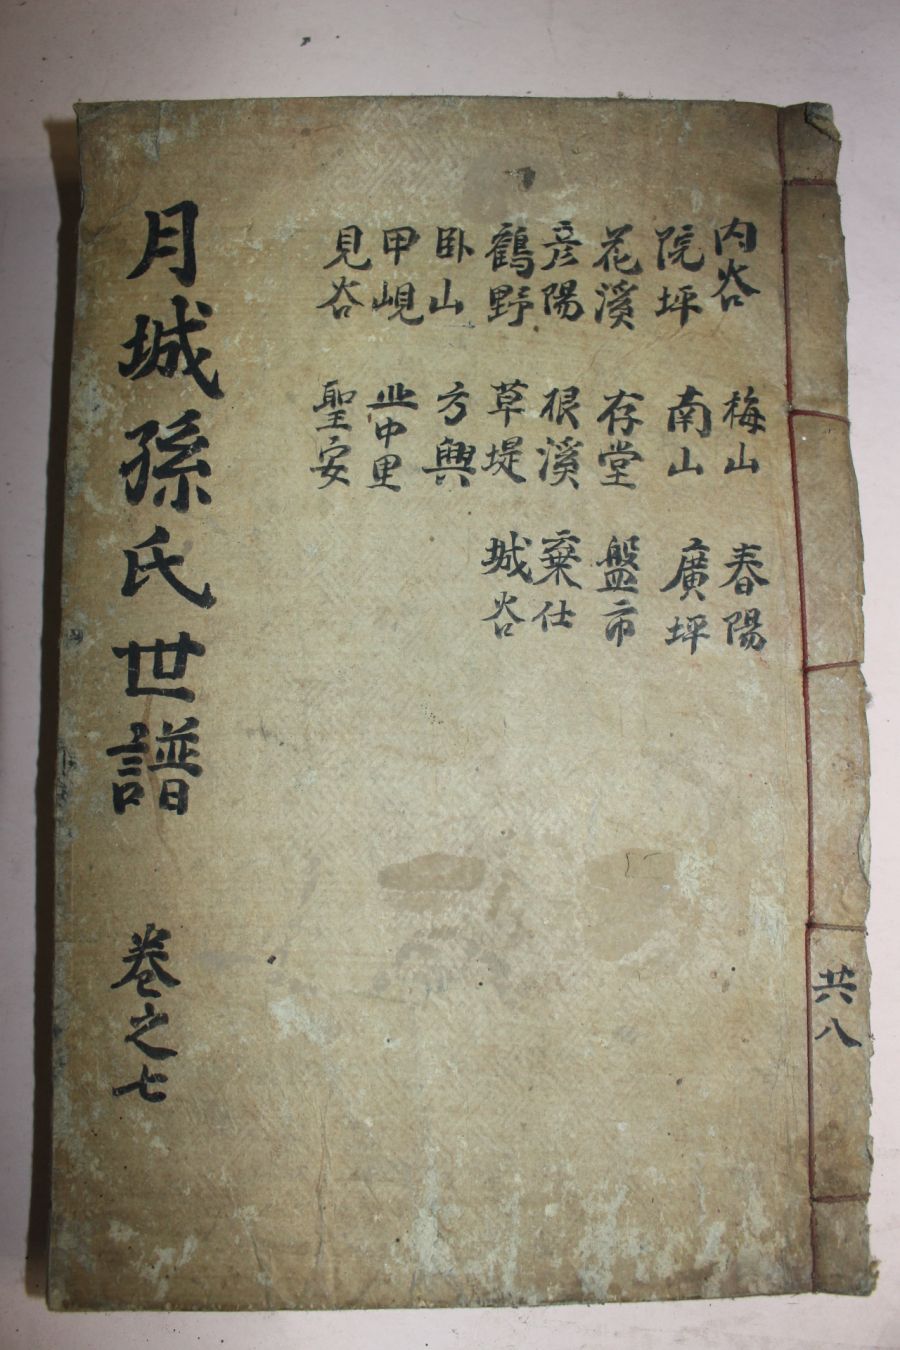 內谷 梅山 春陽
院坪 南山 廣坪
花溪 存堂 盤市
彦陽 根溪 棄仕
鶴野 草堤 城谷
臥山 方興
甲峴 中里
見谷 聖安
月城孫氏世譜 卷之七
共八